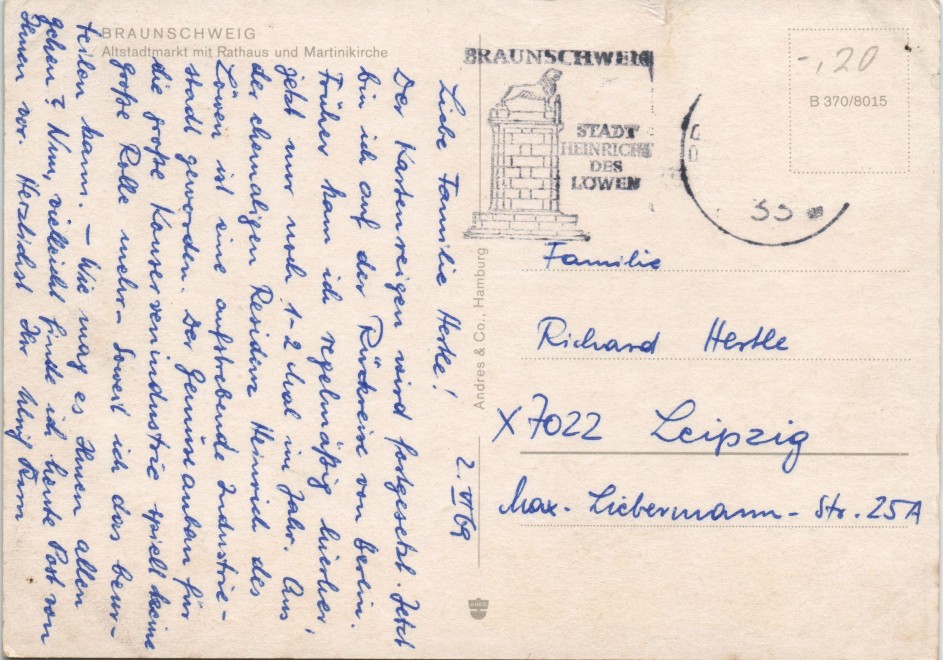 BRAUNSCHWEIG
Altstadtmarkt mit Rathaus und Martinikirche
2. VI 69
Liebe Familie Hertle!
Der Kartenreigen wird fortgesetzt. Jetzt
bin ich auf der Rückreise von Berlin.
Früher kam ich regelmäßig hierher,
jetzt nur noch 1-2 Mal im Jahr. Aus
der ehemaligen Residenz Heinrich des
Löwen ist eine aufstrebende Industrie-
stadt geworden. Der Gemüseanbau für
die große Konservenindustrie spielt keine
große Rolle mehr – soweit ich das beur-
teilen kann. – Wie mag es Ihnen allen
gehen? Nun, vielleicht finde ich heute Post von
Ihnen vor. Herzlichst Ihr
BRAUNSCHWEIG
STADT
HEINRICHS
DES
LÖWEN
33
-,20
B 370/8015
Andres & Co., Hamburg
Familie
Richard Hertle
X 7022 Leipzig
Max-Liebermann-Str. 25A